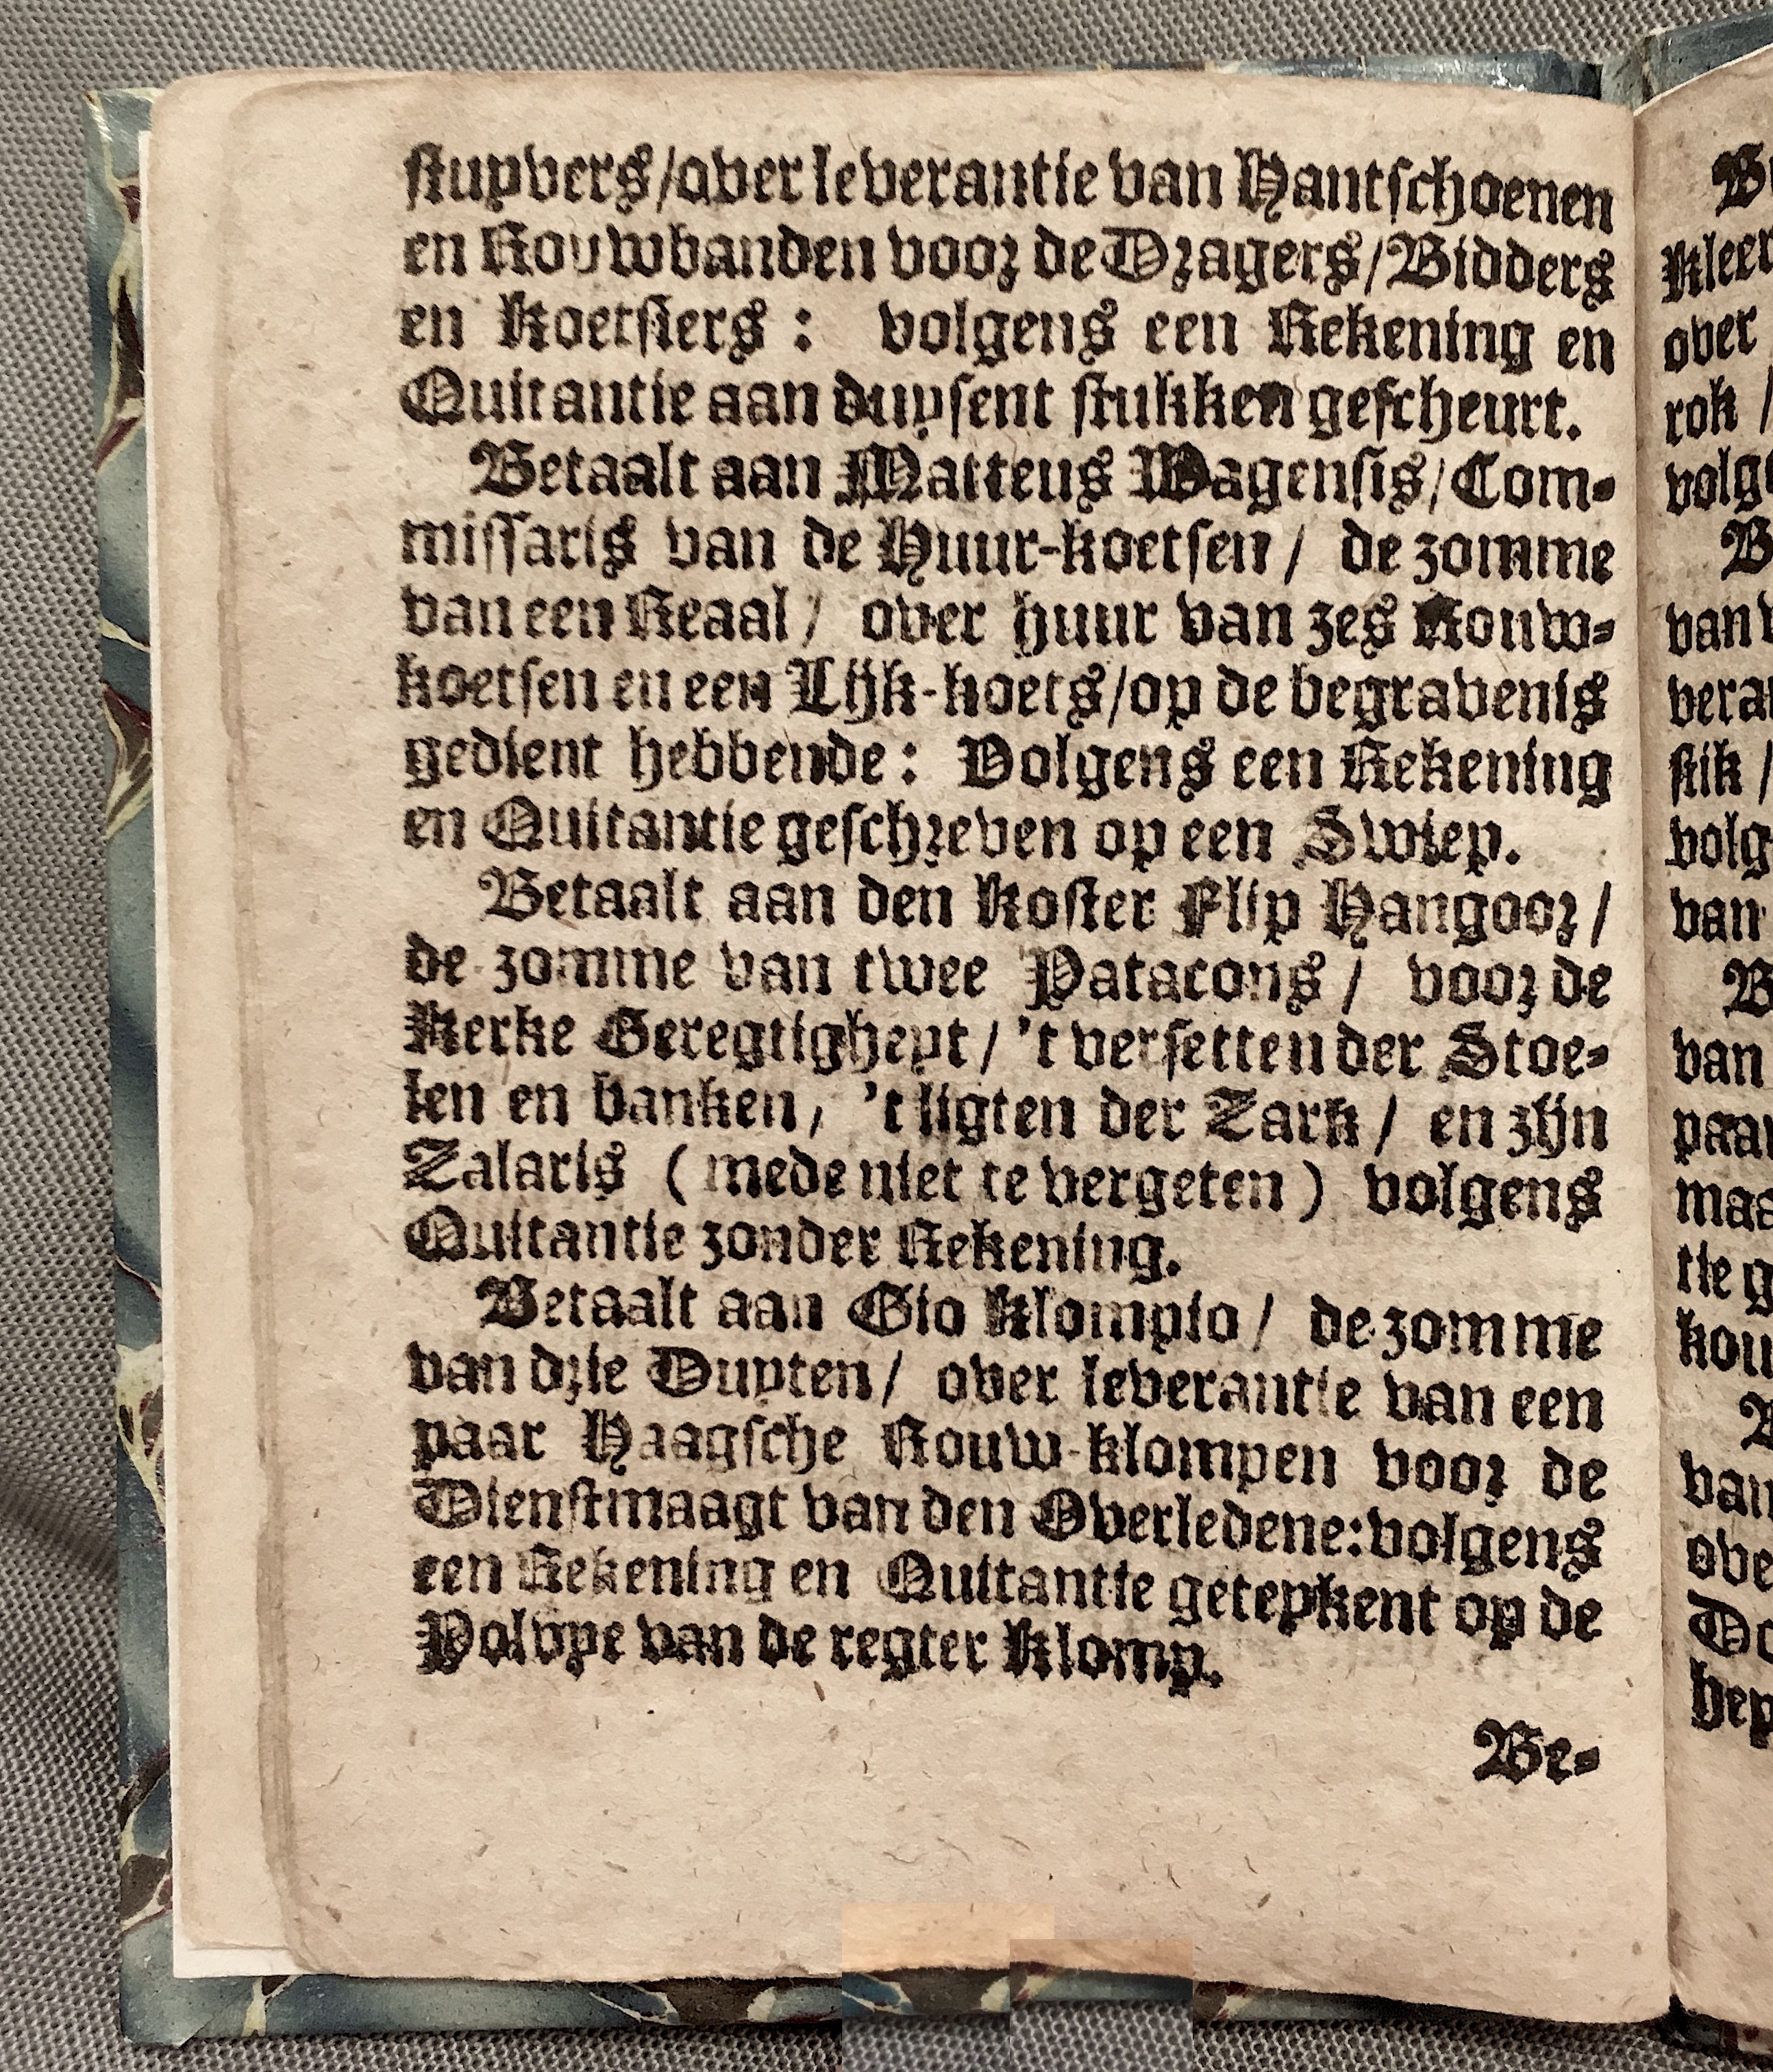 stuyvers/over leverantie van Hantschoenen
en Rouwbanden voor de Dragers/Bidders
en Koetsiers : volgens een Rekening en
Quitantie aan duysent stukken gescheurt.
Betaalt aan Matteus Wagensis/Com-
missaris van de Huur-koetsen / de zomme
van een Reaal / over huur van zes Rouw-
koetsen en een Lijk-koets/op de begravenis
gedient hebbende : Volgens een Rekening
en Quitantie geschreven op een Swiep.
Betaalt aan den Koster Flip Hangoor /
de zomme van twee Patacons / voor de
Kerke Geregtigheyt / 't versetten der Stoe-
len en banken, 't ligten der Zark / en zijn
Zalaris ( mede niet te vergeten ) volgens
Quitantie zonder Rekening.
Betaalt aan Gio Klompio / de zomme
van drie Duyten / over leverantie van een
paar Haagsche Rouw-klompen voor de
Dienstmaagt van den Overledene:volgens
een Rekening en Quitantie geteykent op de
Polvye van de regter Klomp.
Be-
Kleer
over
rok /
volg
B
van
vera
stik /
volg
van
B
van
paar
maa
tie g
kou
van
ove
Do
hey